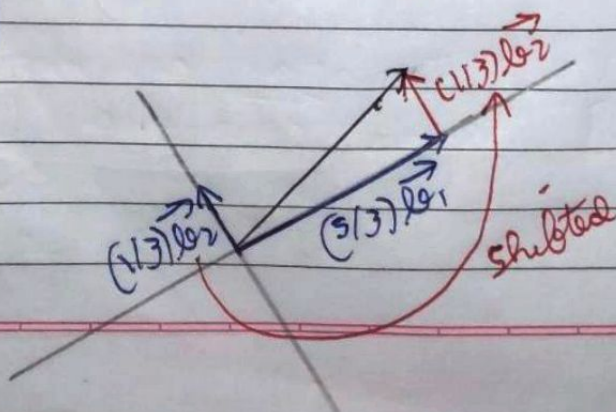 (1/3) b₂
(1/3) b₂
(5/3) b₁
shifted